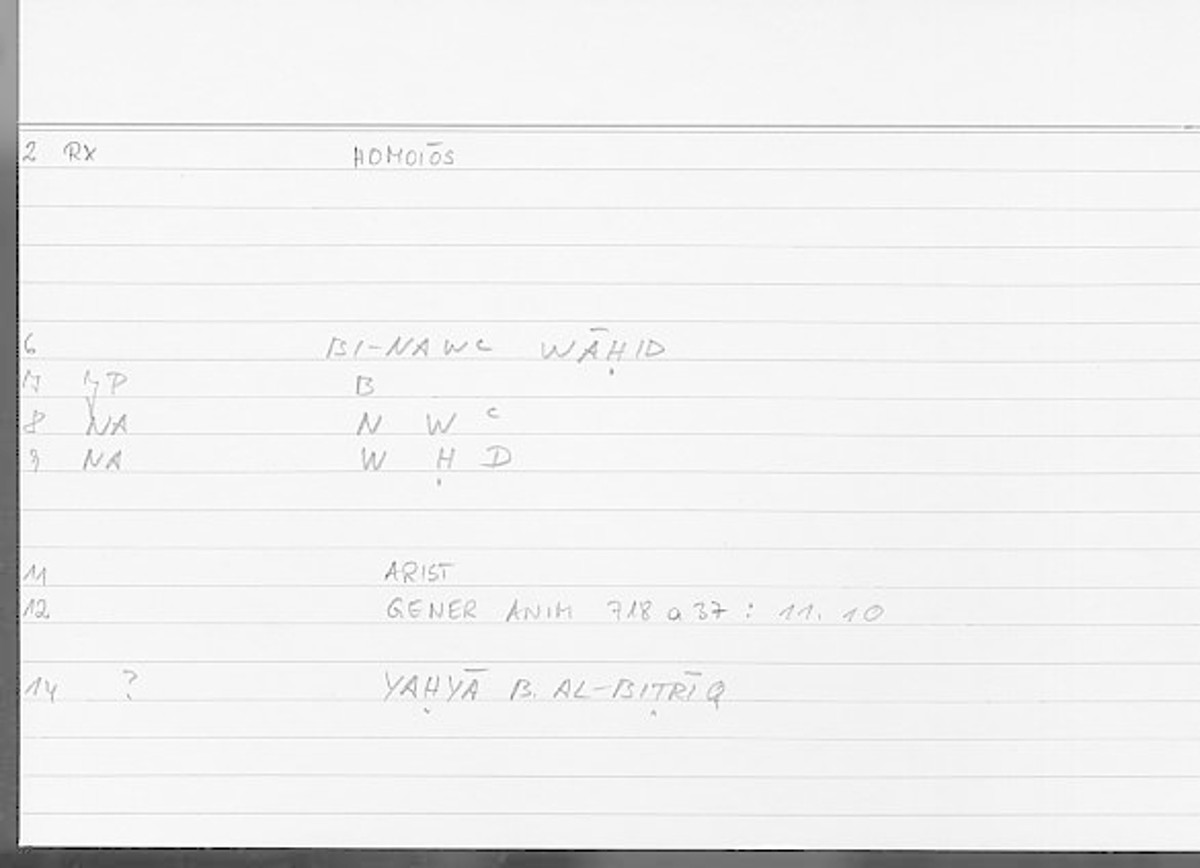 2 RX HOMOIŌS
6 BI-NAWC WĀḤID
7 P B
8 NA N W C
9 NA W Ḥ D
11 ARIST
12 GENER ANIM 718 a 37 : 11. 10
14 ? YAḤYĀ B. AL-BIṬRĪQ